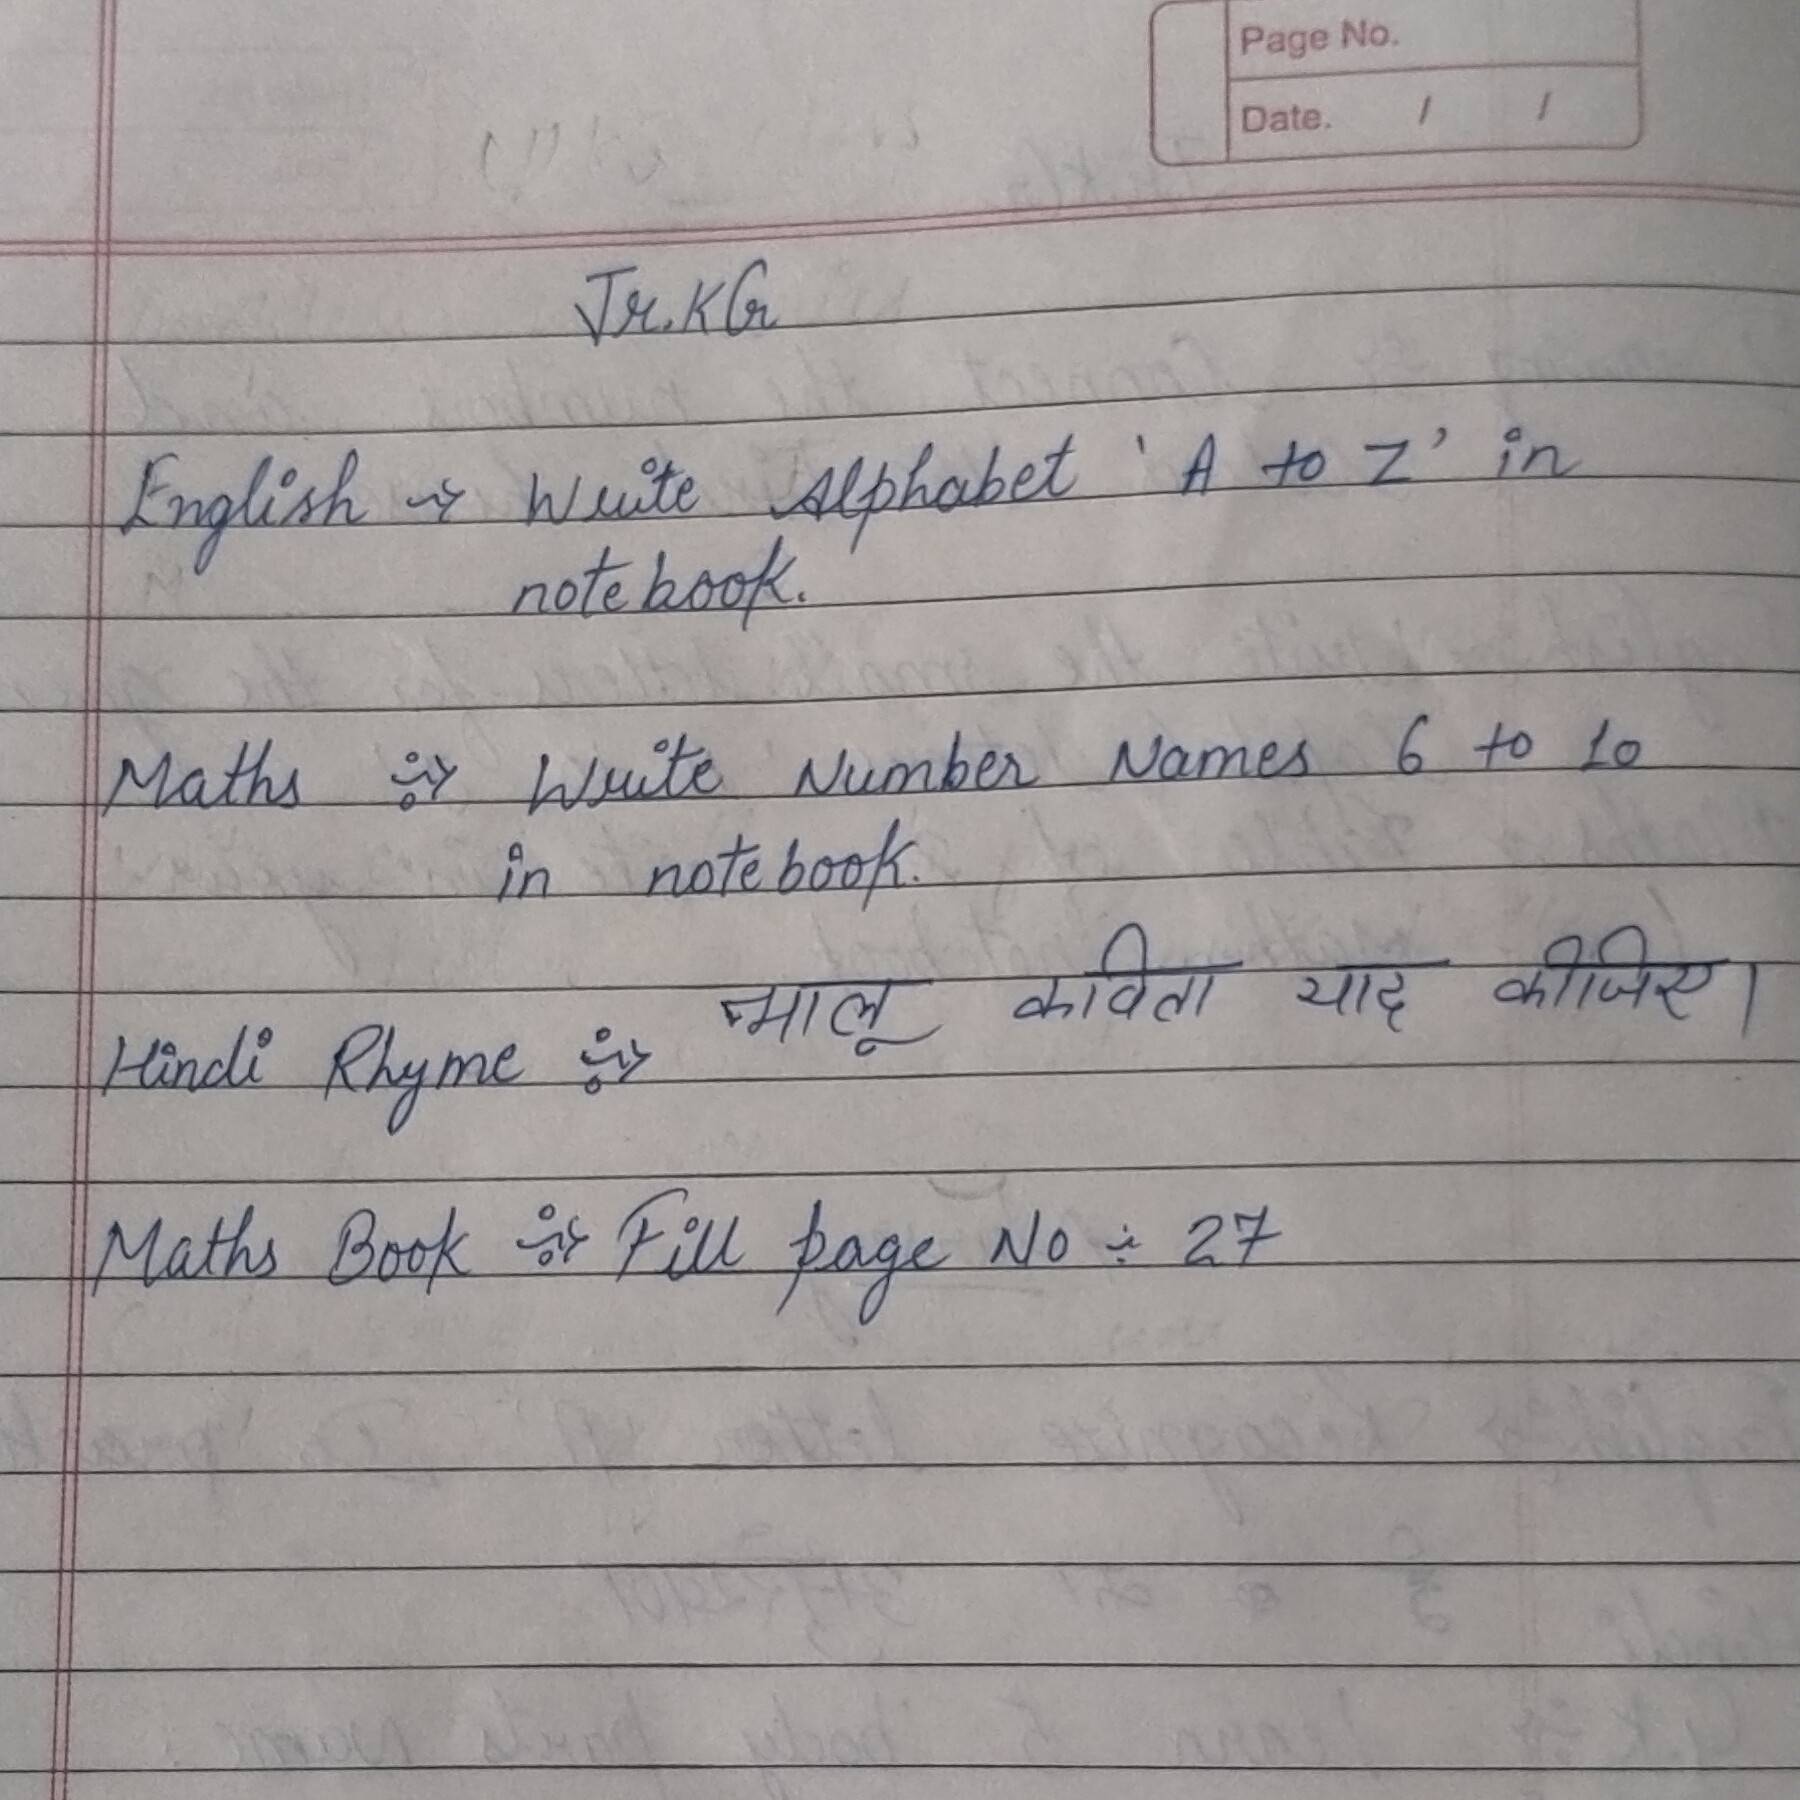 Page No.
Date. / /
Jr.KG
English → Write Alphabet 'A to Z' in
notebook.
Maths :→ Write Number Names 6 to 10
in notebook.
Hindi Rhyme :→ भालू कविता याद कीजिए।
Maths Book :→ Fill page No : 27